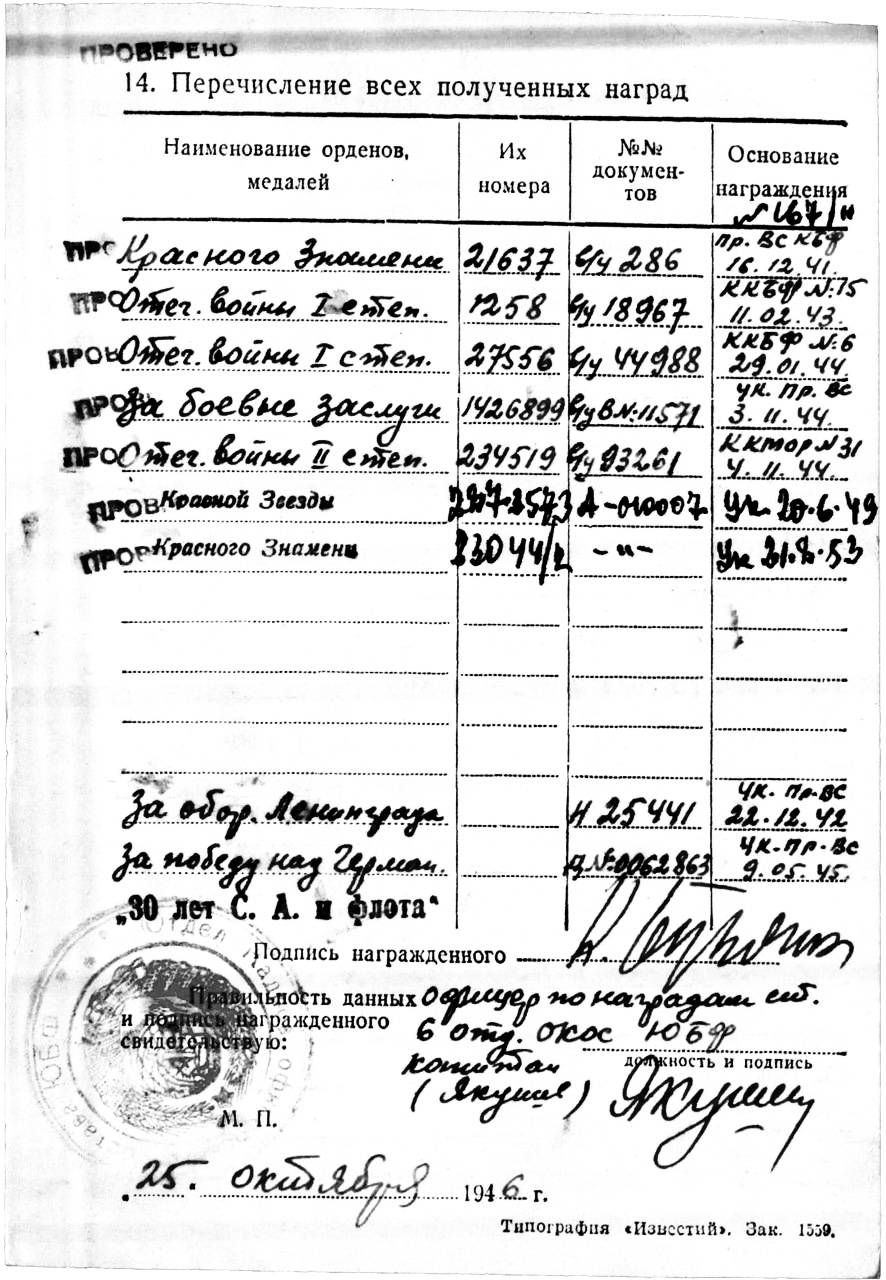 ПРОВЕРЕНО
14. Перечисление всех полученных наград
Наименование орденов, медалей
Их номера
№№ документов
Основание награждения
№ 167/н
ПРО Красного Знамени 21637 в/у 286 Пр. ВС КБФ 16.12.41.
ПРО Отеч. войны I степ. 1258 в/у 18967 ККБФ №75 11.02.43.
ПРОВ Отеч. войны I степ. 27556 в/у 44988 ККБФ №6 29.01.44.
ПРОВ За боевые заслуги 1426899 в/у В №11571 Ук. Пр. ВС 3.11.44.
ПРО Отеч. войны II степ. 234519 в/у 93261 ККМОР №31 4.11.44.
ПРОВ Красной Звезды А-010007 Ук. 20.6.49
ПРОВ Красного Знамени -"- Ук
За обор. Ленинграда Н 25441 Ук. Пр. ВС 22.12.42
За победу над Герман. №0062863 Ук. Пр. ВС 9.05.45.
„30 лет С. А. и флота"
Подпись награжденного
Правильность данных Офицер по наградам
и подпись награжденного 6 отд. ОКОС ЮБФ
свидетельствую: капитан должность и подпись
(Якушев) Якушев
М. П.
25. октября 1946 г.
Типография «Известий». Зак. 1559.